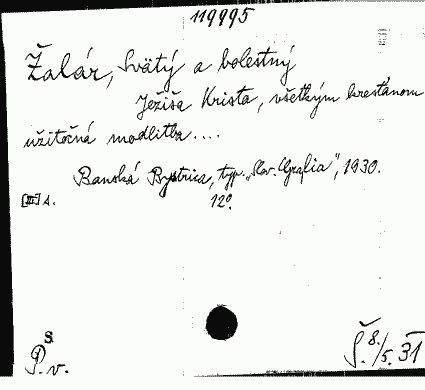 119995
Žalár, Svätý a bolestný
Ježiša Krista, všetkým kresťanom
užitočná modlitba ....
Banská Bystrica, typ. „Slov. Grafia", 1930.
[III] A. 12°.
S.
P. v.
Š. 8./5. 31